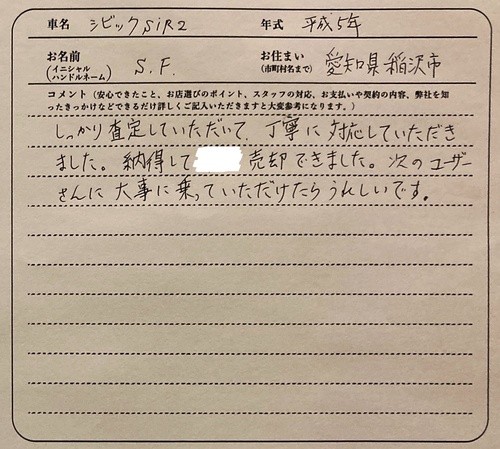 車名 シビックSiR2 年式 平成5年
お名前 (イニシャル ハンドルネーム) S.F. お住まい (市町村名まで) 愛知県稲沢市
コメント(安心できたこと、お店選びのポイント、スタッフの対応、お支払いや契約の内容、弊社を知
ったきっかけなどできるだけ詳しくご記入いただきますと大変参考になります。)
しっかり査定していただいて、丁寧に対応していただき
ました。納得して 売却できました。次のユーザー
さんに大事に乗っていただけたらうれしいです。